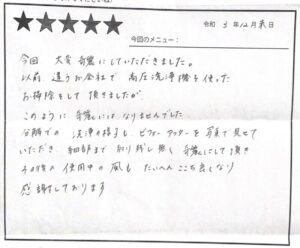 ★★★★★
令和 3 年 12 月 末 日
今回のメニュー：
今回 大変 綺麗にしていただきました。
以前 違うお会社で 高圧洗浄機を使った
お掃除をして頂きましたが、
このように 綺麗には なりませんでした
分解での 洗浄の様子も、ビフォーアフターを 写真で見せて
いただき、細部まで 削り残し 無く 綺麗にして頂き
その後の 使用中の 風も たいへん ここち良くなり
感謝しております